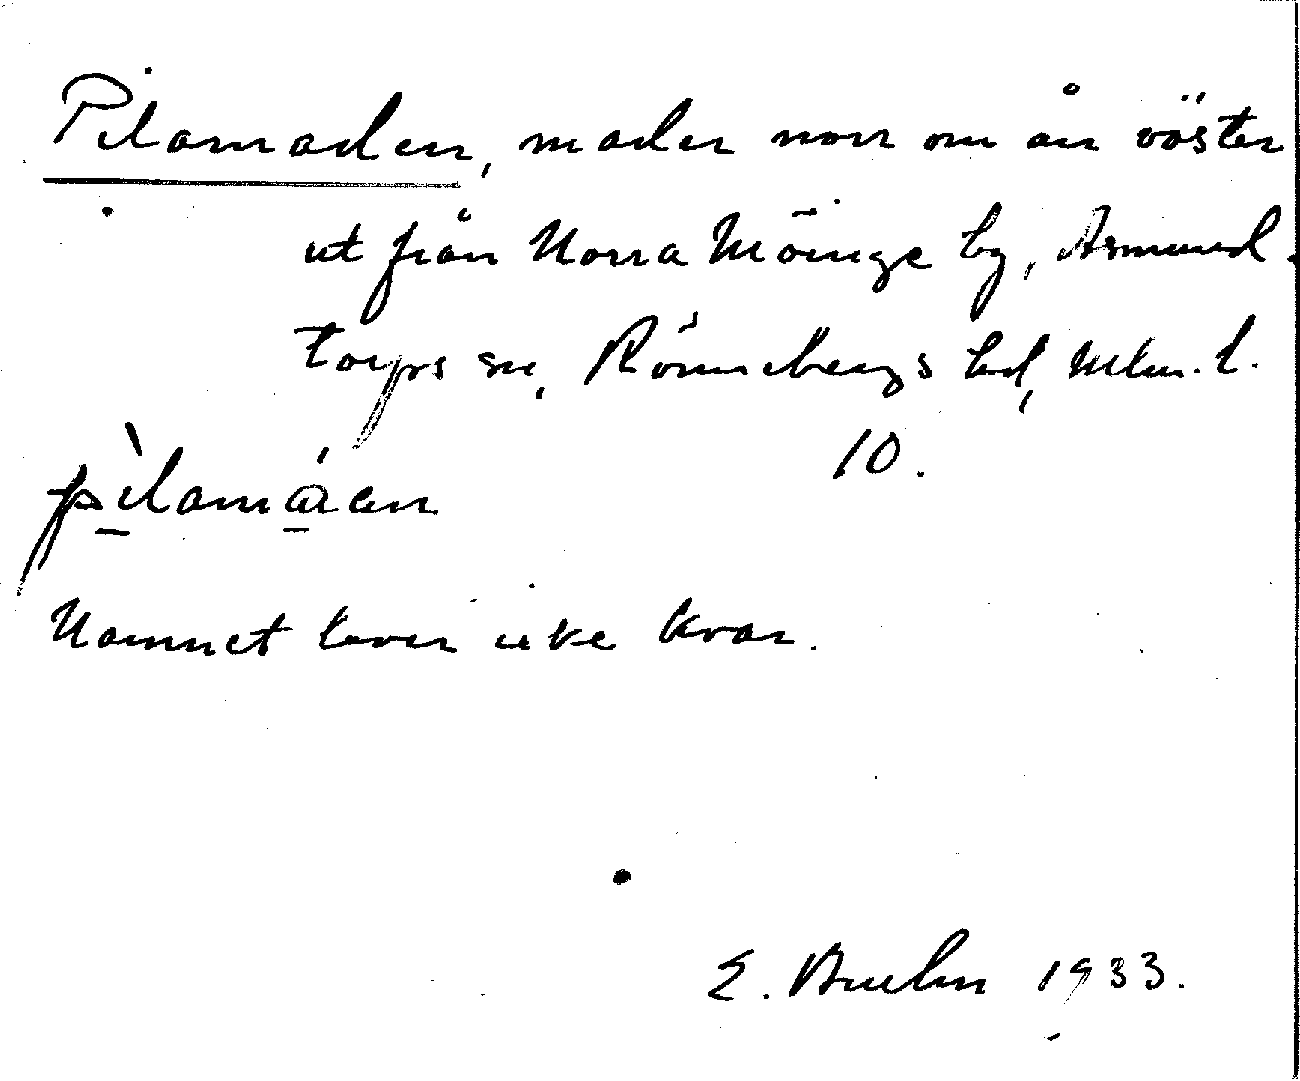 Pilamaden, mader norr om ån väster
ut från Norra Möinge by, Asmund-
torps sn, Rönnebergs hd, Mlm. l.
10.
pìlamáen
Namnet lever icke kvar.
E. 1933.